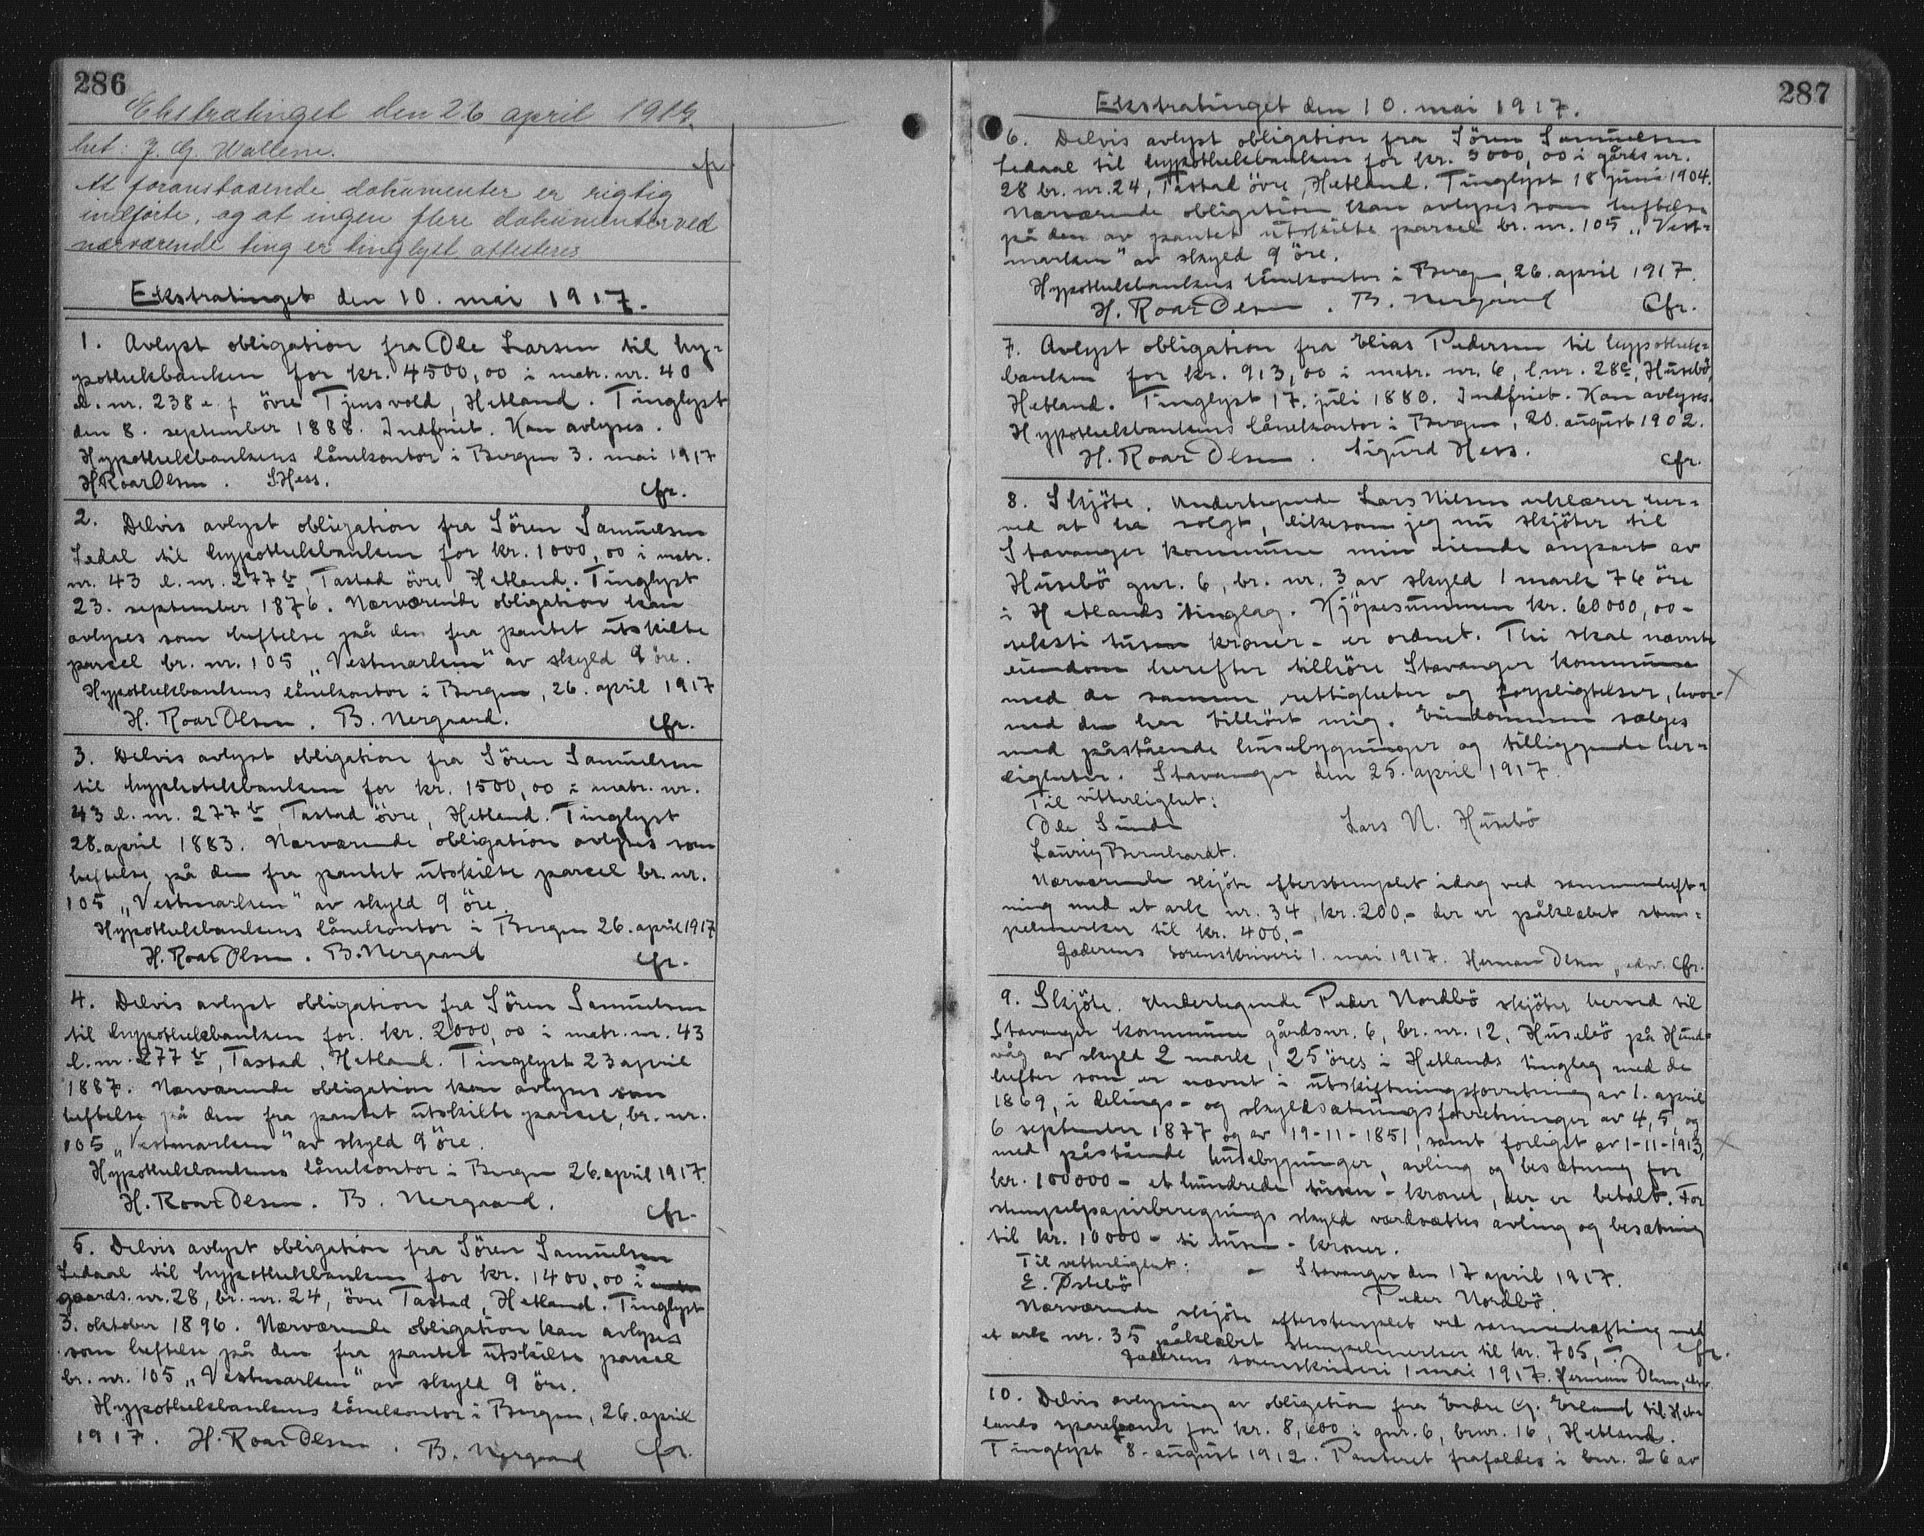 286
Ekstratinget den 26 april 1917.
het: J. G. Wallem.
cfr
At foranstaaende dokumenter er rigtig
indførte, og at ingen flere dokumenter ved
nærværende ting er tinglyst attesteres
Ekstratinget den 10. mai 1917.
1. Avlyst obligation fra Ole Larsen til hy-
pothekbanken for kr. 4500,00 i matr. nr. 40
l. nr. 238 e. f övre Tjensvold, Hetland. Tinglyst
den 8. september 1888. Indfriet. Kan avlyses.
Hypothekbankens lånekontor i Bergen 3. mai 1917
H. Roar Olsen. S. Hess.
Cfr.
2. Delvis avlyst obligation fra Sören Samuelsen
Ledal til hypothekbanken for kr. 1000,00 i matr.
nr. 43 l. nr. 277 b, Tastad övre, Hetland. Tinglyst
23. september 1876. Nærværende obligation kan
avlyses som heftelse på den fra pantet utskilte
parcel br. nr. 105 „Vestmarken" av skyld 9 öre.
Hypothekbankens lånekontor i Bergen, 26. april 1917
H. Roar Olsen. B. Nergaard.
Cfr.
3. Delvis avlyst obligation fra Sören Samuelsen
til hyphotekbanken for kr. 1500,00 i matr. nr.
43 l. nr. 277 b, Tastad övre, Hetland. Tinglyst
28. april 1883. Nærværende obligation avlyses som
heftelse på den fra pantet utskilte parcel br. nr.
105 „Vestmarken" av skyld 9 öre.
Hypothekbankens lånekontor i Bergen 26. april 1917
H. Roar Olsen. B. Nergaard
Cfr.
4. Delvis avlyst obligation fra Sören Samuelsen
til hypothekbanken for kr. 2000,00 i matr. nr. 43
l. nr. 277 b, Tastad, Hetland. Tinglyst 23 april
1887. Nærværende obligation kan avlyses som
heftelse på den fra pantet utskilte parcel, br. nr.
105 „Vestmarken" av skyld 9 öre.
Hypothekbankens lånekontor i Bergen 26. april 1917.
H. Roar Olsen. B. Nergaard.
Cfr.
5. Delvis avlyst obligation fra Sören Samuelsen
Ledaal til hypothekbanken for kr. 1400,00 i
gaards. nr. 28, br. nr. 24, övre Tastad, Hetland. Tinglyst
3. oktober 1896. Nærværende obligation kan avlyses
som heftelse på den fra pantet utskilte parcel
br. nr. 105 „Vestmarken" av skyld 9 öre.
Hypothekbankens lånekontor i Bergen, 26. april
1917. H. Roar Olsen. B. Nergaard
cfr.
287
Ekstratinget den 10. mai 1917.
6. Delvis avlyst obligation fra Sören Samuelsen
Ledaal til hypothekbanken for kr. 3000,00 i gårds nr.
28 br. nr. 24, Tastad övre, Hetland. Tinglyst 18 juni 1904.
Nærværende obligation kan avlyses som heftelse
på den av pantet utskilte parcel br. nr. 105 „Vest-
marken" av skyld 9 öre.
Hypothekbankens lånekontor i Bergen, 26. april 1917.
H. Roar Olsen. B. Nergaard
Cfr.
7. Avlyst obligation fra Elias Pedersen til hypothek-
banken for kr. 913,00 i matr. nr. 6, l. nr. 28c, Husebö,
Hetland. Tinglyst 17. juli 1880. Indfriet. Kan avlyses.
Hypothekbankens lånekontor i Bergen, 20. august 1902.
H. Roar Olsen. Sigurd Hess.
Cfr.
8. Skjöte. Undertegnede Lars Nilsen erklærer her-
ved at ha solgt, likesom jeg nu skjöter til
Stavanger kommune min eiende anpart av
Husebö gnr. 6, br. nr. 3 av skyld 1 mark 76 öre
i Hetlands tinglag. Kjöpesummen kr. 60000,00 -
seksti tusen kroner - er ordnet. Thi skal nævnte
eiendom herefter tilhöre Stavanger kommune
med de samme rettigheter og forpligtelser, hvor-
med den har tilhört mig. Eiendommen sælges
med påstående husebygninger og tilliggende her-
ligheter. Stavanger den 25. april 1917.
Til vitterlighet:
Ole Sunde
Lars N. Husebö
Lauritz Bernhardt.
Nærværende skjöte efterstemplet idag ved sammenheft-
ning med et ark nr. 34, kr. 200,- der er påklebet stem-
pelmerker til kr. 400.-
Jæderens sorenskriveri 1. mai 1917. Herman Olsen, edsv. Cfr.
9. Skjöte. Undertegnede Peder Nordbö skjöter herved til
Stavanger kommune gårdsnr. 6, br. nr. 12, Husebö på Hund-
våg av skyld 2 mark, 25 öres i Hetlands tinglag med de
hefter som er nævnt i utskiftningsforretning av 1. april
1869, i delings- og skyldsætningsforretninger av 4, 5, og
6 september 1877 og av 19-11-1851, samt forliget av 1-11-1913,
med påstående husebygninger, avling og besætning for
kr. 100000 - et hundrede tusen - kroner, der er betalt. For
stempelpapirberegnings skyld værdsættes avling og besætning
til kr. 10000 - ti tusen - kroner.
Til vitterlighet: - Stavanger den 17 april 1917.
E. Østebö
Peder Nordbö.
Nærværende skjöte efterstemplet ved sammenhæftning med
et ark nr. 35 påklebet stempelmerker til kr. 705,-. Cfr.
Jæderens sorenskriveri 1 mai 1917. Herman Olsen, edsv
10. Delvis avlysning av obligation fra Endre G. Erland til Het-
lands sparebank for kr. 8,600 i gnr. 6, brnr. 16, Hetland.
Tinglyst 8. august 1912. Panteret frafaldes i bnr. 26 av